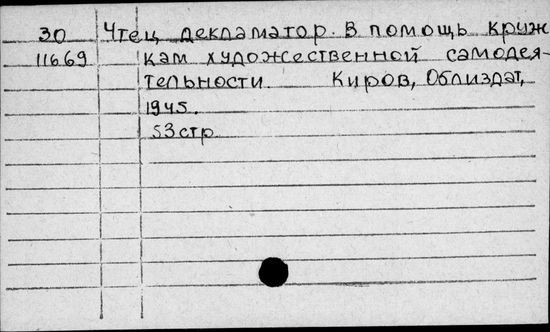 30 Чтец декламатор. В помощь круж
11669 кам художественной самодея-
тельности. Киров, Облиздат,
1945.
53 стр